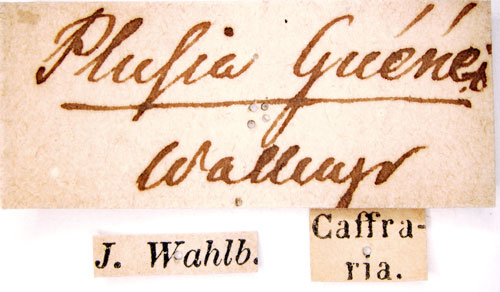 Plusia Guénéi
Wallengr
J. Wahlb.
Caffra-
ria.